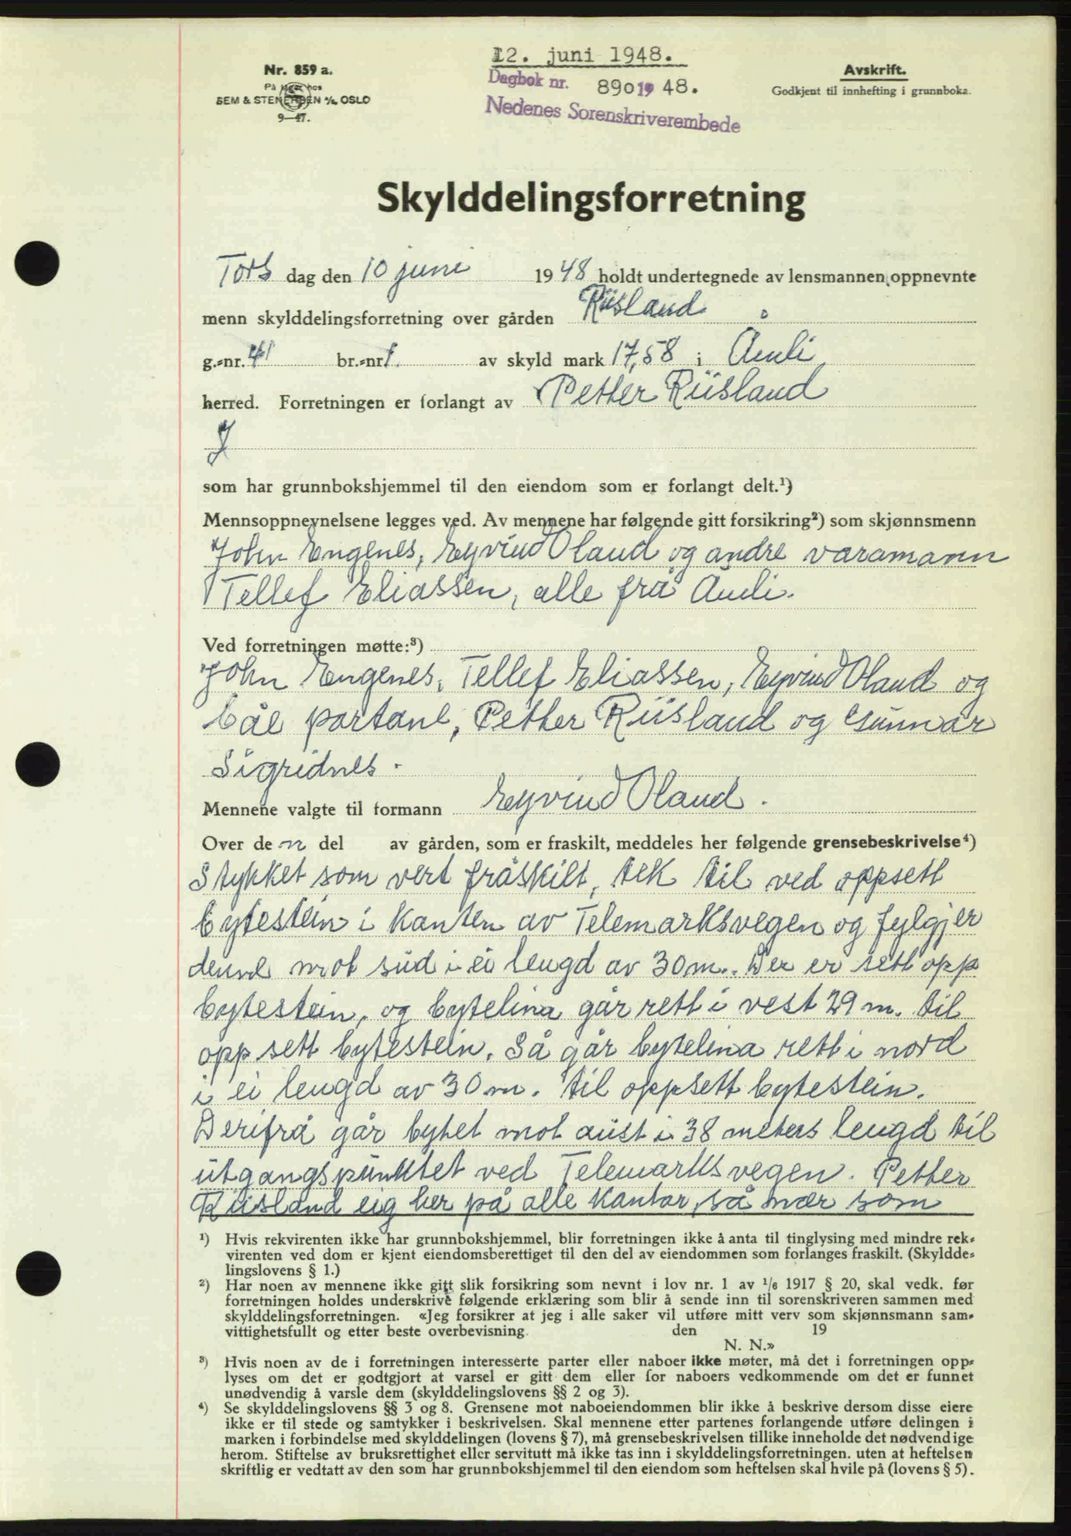 12. juni 1948.
Nr. 859 a.
På lager hos
SEM & STENERSEN A/S, OSLO
9—47.
Dagbok nr. 890 19 48.
Nedenes Sorenskriverembede
Avskrift.
Godkjent til innhefting i grunnboka.
Skylddelingsforretning
Tors dag den 10 juni 1948 holdt undertegnede av lensmannen oppnevnte
menn skylddelingsforretning over gården Riisland
g.-nr. 41 br.-nr. 1. av skyld mark 17,58 i Åmli
herred. Forretningen er forlangt av Petter Riisland
som har grunnbokshjemmel til den eiendom som er forlangt delt.¹)
Mennsoppnevnelsene legges ved. Av mennene har følgende gitt forsikring²) som skjønnsmenn
John Engenes, Eyvind Oland og andre varamann
Tellef Eliassen, alle frå Åmli.
Ved forretningen møtte:³)
John Engenes, Tellef Eliassen, Eyvind Oland og
båe partane, Petter Riisland og Gunnar
Sigridnes.
Mennene valgte til formann Eyvind Oland.
Over de n del av gården, som er fraskilt, meddeles her følgende grensebeskrivelse⁴)
Stykket som vert fråskilt, tek til ved oppsett
bytestein i kanten av Telemarksvegen og fylgjer
denne mot sud i ei lengd av 30 m. Der er sett opp
bytestein, og bytelina går rett i vest 29 m. til
oppsett bytestein. Så går bytelina rett i nord
i ei lengd av 30 m. til oppsett bytestein.
Derifrå går bytet mot aust i 38 meters lengd til
utgangspunktet ved Telemarksvegen. Petter
Riisland eig her på alle kantar, så nær som
¹) Hvis rekvirenten ikke har grunnbokshjemmel, blir forretningen ikke å anta til tinglysing med mindre rek-
virenten ved dom er kjent eiendomsberettiget til den del av eiendommen som forlanges fraskilt. (Skyldde-
lingslovens § 1.)
²) Har noen av mennene ikke gitt slik forsikring som nevnt i lov nr. 1 av 1/6 1917 § 20, skal vedk. før
forretningen holdes underskrive følgende erklæring som blir å sende inn til sorenskriveren sammen med
skylddelingsforretningen. «Jeg forsikrer at jeg i alle saker vil utføre mitt verv som skjønnsmann sam-
vittighetsfullt og etter beste overbevisning. den 19
N. N.»
³) Hvis noen av de i forretningen interesserte parter eller naboer ikke møter, må det i forretningen opp-
lyses om det er godtgjort at varsel er gitt dem eller for naboers vedkommende om det er funnet
unødvendig å varsle dem (skylddelingslovens §§ 2 og 3).
⁴) Se skylddelingslovens §§ 3 og 8. Grensene mot naboeiendommen blir ikke å beskrive dersom disse eiere
ikke er til stede og samtykker i beskrivelsen. Skal mennene etter partenes forlangende utføre delingen i
marken i forbindelse med skylddelingen (lovens § 7), må grensebeskrivelsen tillike inneholde det nødvendige
herom. Stiftelse av bruksrettighet eller servitutt må ikke tas inn i skylddelingsforretningen, uten at heftelsen
skriftlig er vedtatt av den som har grunnbokshjemmel til den eiendom som heftelsen skal hvile på (lovens § 5).